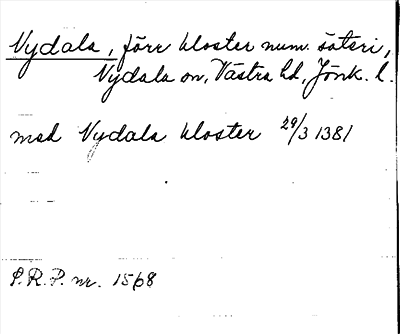 Nydala, förr kloster num. säteri,
Nydala sn, Västra hd, Jönk. l.
med Nydala kloster 29/3 1381
S.R.P. nr. 1568